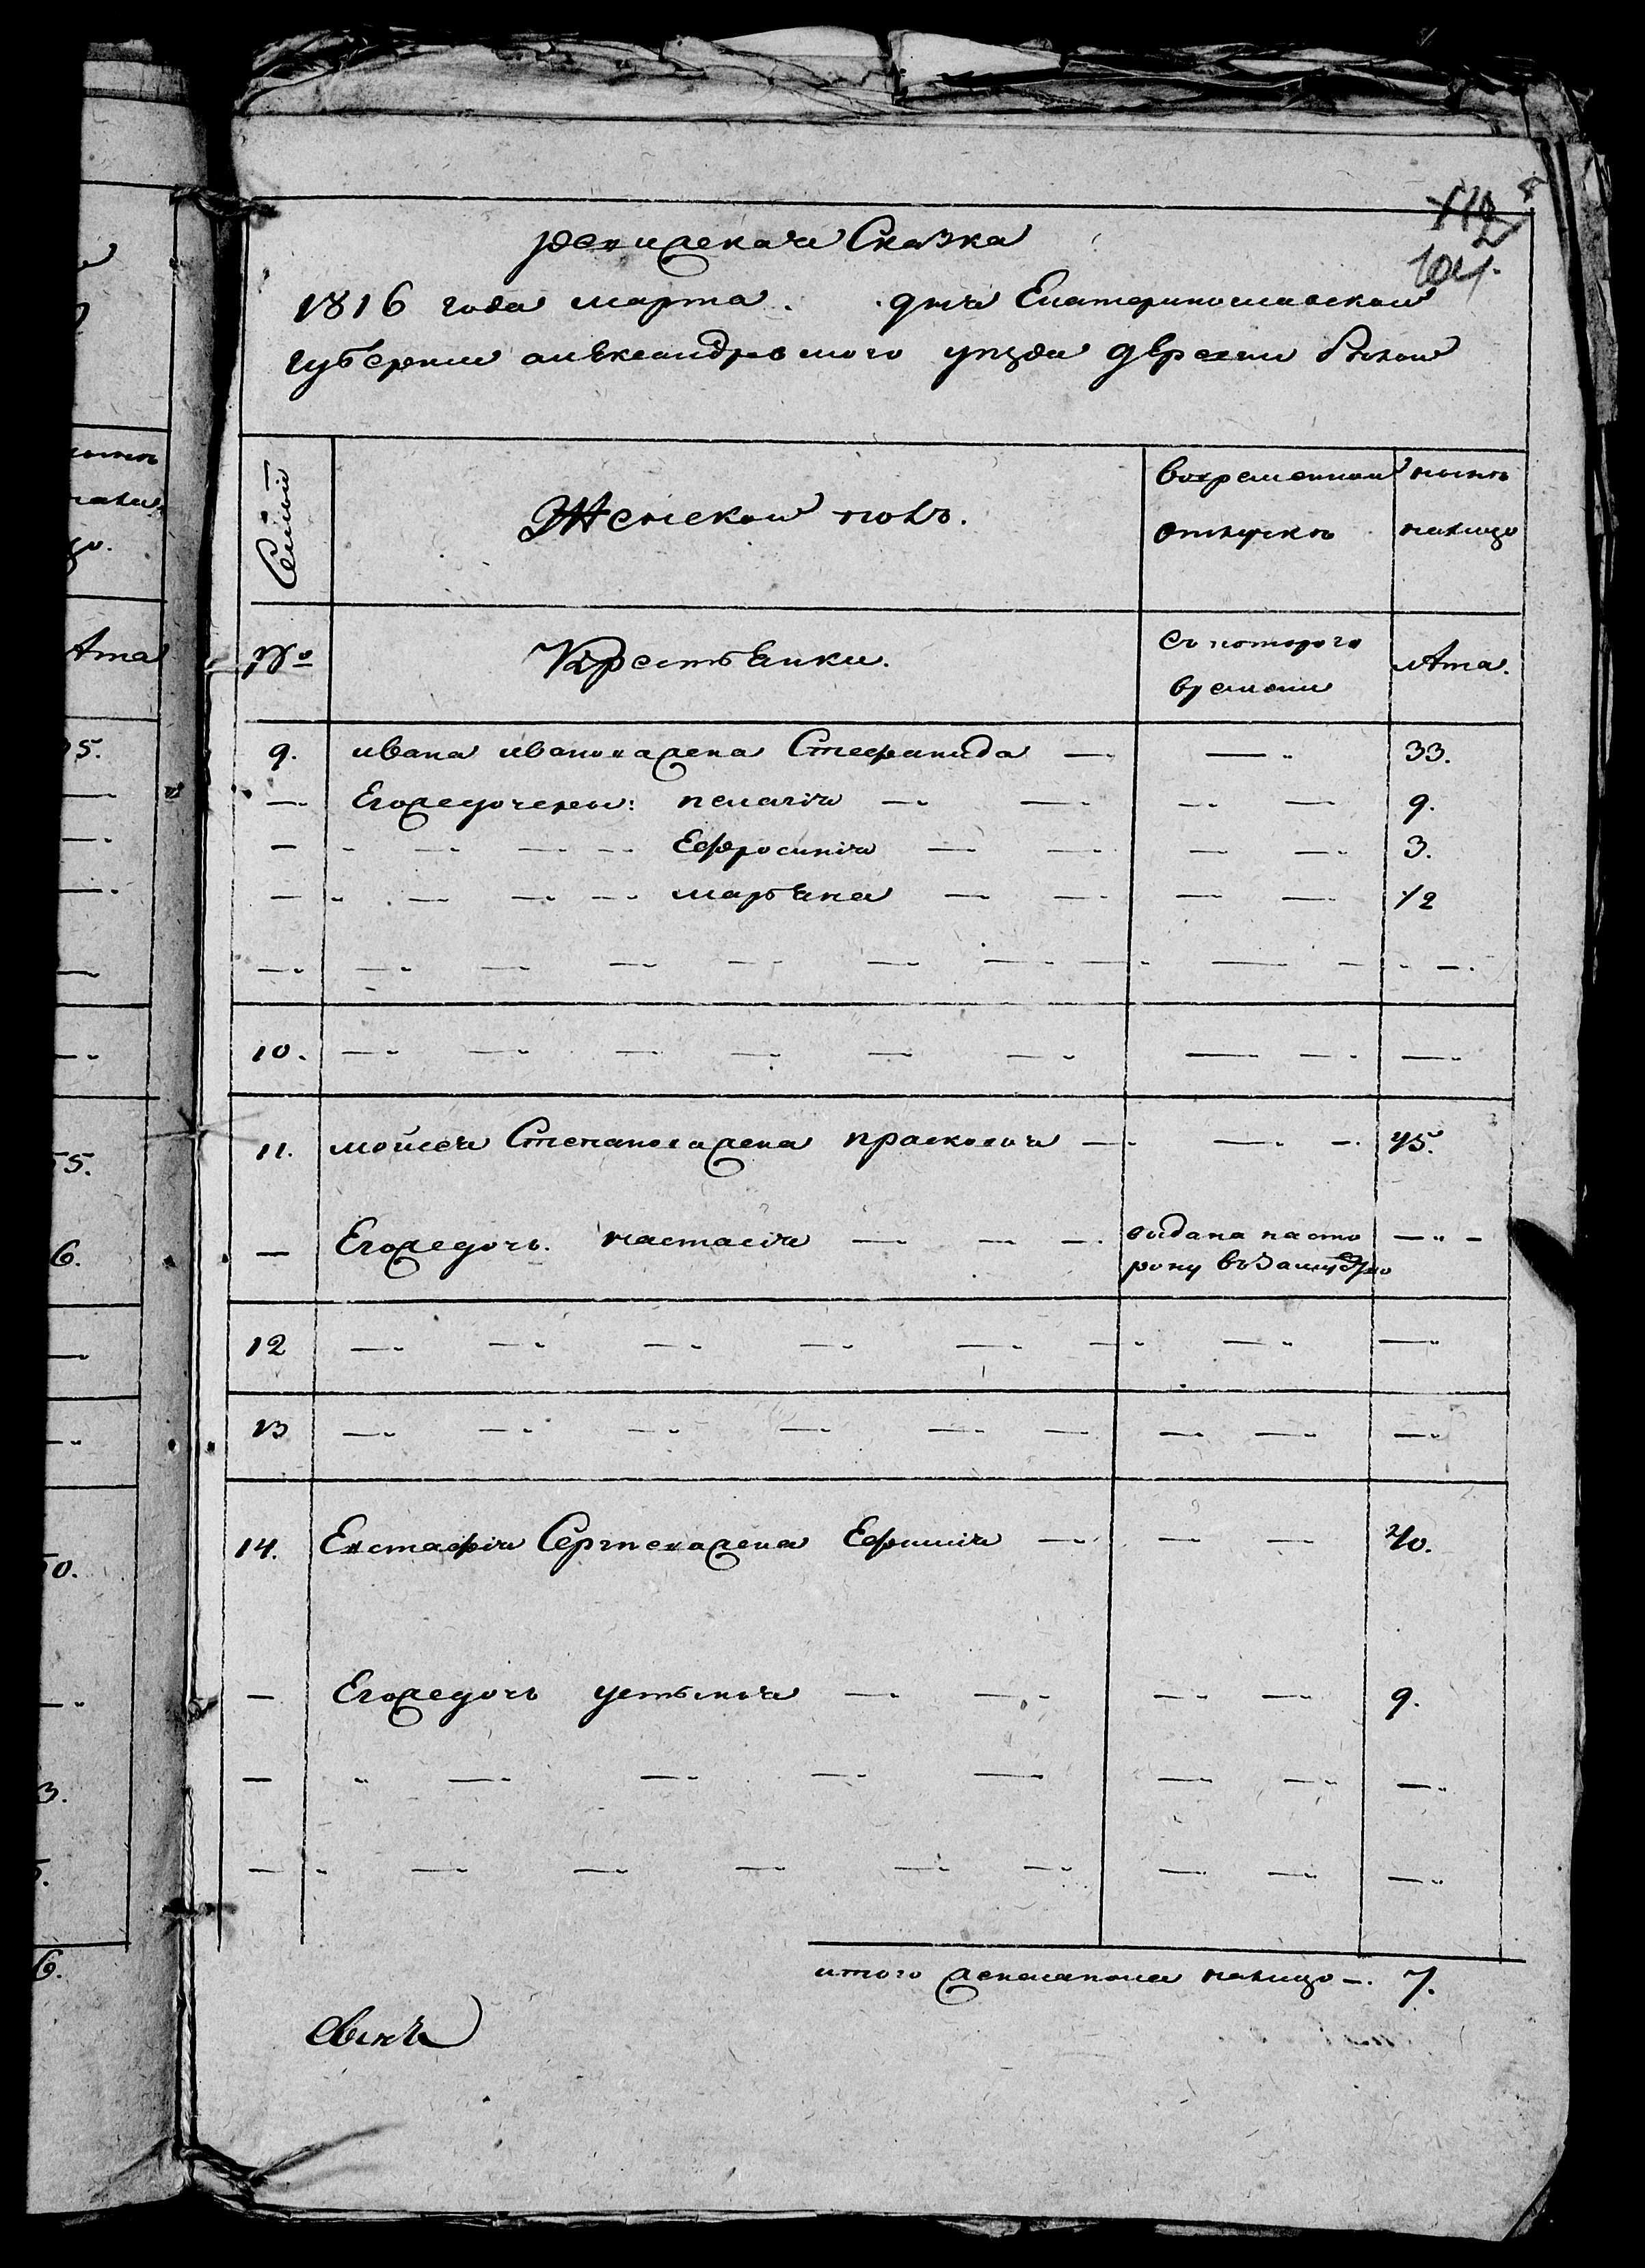 112
104.
ревижская Сказка
1816 года марта . дня Екатеринославской
губернии александровского уезда деревни
Семьи
Женской полъ.
вовременной
отлучкѣ
нынѣ
налицо
№
Крестьянки.
съ которого
времяни
лѣта.
9. ивана иванова жена Стефанида — — 33.
— Егожедочери: пелагія — — — — 9.
— — — — Ефросинія — — — — 3.
— — — — марьяна — — — — 1/2
10. — — — — — — — — —
11. мойсея Степанова жена прасковія — — — 45.
— Егожедочь. настасія — — — выдана насто
рону взамужство — —
12 — — — — — — — —
13 — — — — — — — — —
14. Евстафія Сергѣева жена Ефимія — — — 40.
— Егожедочь устинія — — — — 9.
итого женскаполу налицо —. 7.